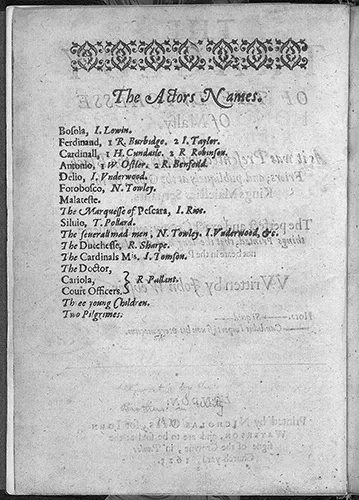 The Actors Names.
Bosola, I. Lowin.
Ferdinand, 1 R. Burbidge. 2 I. Taylor.
Cardinall, 1 H. Cundaile. 2 R. Robinson.
Antonio, 1 W. Ostler. 2 R. Benfeild.
Delio, I. Vnderwood.
Forobosco, N. Towley.
Malateste.
The Marquesse of Pescara, I. Rice.
Siluio, T. Pollard.
The seuerall mad men, N. Towley. I. Vnderwood, &c.
The Dutchesse, R. Sharpe.
The Cardinals Mis. I. Tomson.
The Doctor,
Cariola, } R. Pallant.
Court Officers.
Three young Children.
Two Pilgrimes.